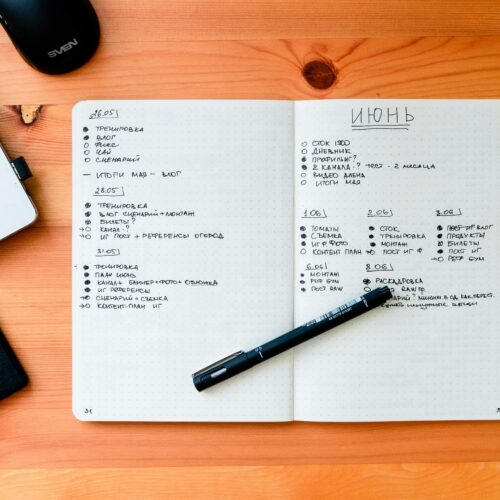 SVEN
26.05
ТРЕНИРОВКА
ВЛОГ
ФИКС
ЧАЙ
СЦЕНАРИЙ
— ИТОГИ МАЯ — ВЛОГ
28.05
ТРЕНИРОВКА
ВЛОГ СЦЕНАРИЙ + МОНТАЖ
БИЛЕТЫ?
КАНАЛ-?
ИГ ПОСТ + РЕФЕРЕНСЫ ОГОРОД
31.05
ТРЕНИРОВКА
ПЛАН ИЮНЬ
КАНАЛ + БАННЕР + ФОТО + ОБЛОЖКА
ИГ РЕФЕРЕНСЫ
СЦЕНАРИЙ + СЪЕМКА
КОНТЕНТ-ПЛАН ИГ
31
ИЮНЬ
СТОК
ДНЕВНИК
ПРОФИЛИНГ?
2 КАНАЛА-? ТЕСТ - 2 МЕСЯЦА
ВИДЕО
ИТОГИ МАЯ
1.06
ТОМАТЫ
СЪЕМКА
ИГ ФОТО
КОНТЕНТ ПЛАН
2.06
СТОК
ТРЕНИРОВКА
МОНТАЖ
ПОСТ ИГ
3.06
ВЛОГ
ПРОДУКТЫ
БИЛЕТЫ
ПОСТ ИГ
РЕГ БУМ
6.06
МОНТАЖ
РЕГ БУМ
ПОСТ RAW
8.06
РАСКАДРОВКА
ПОСТ RAW